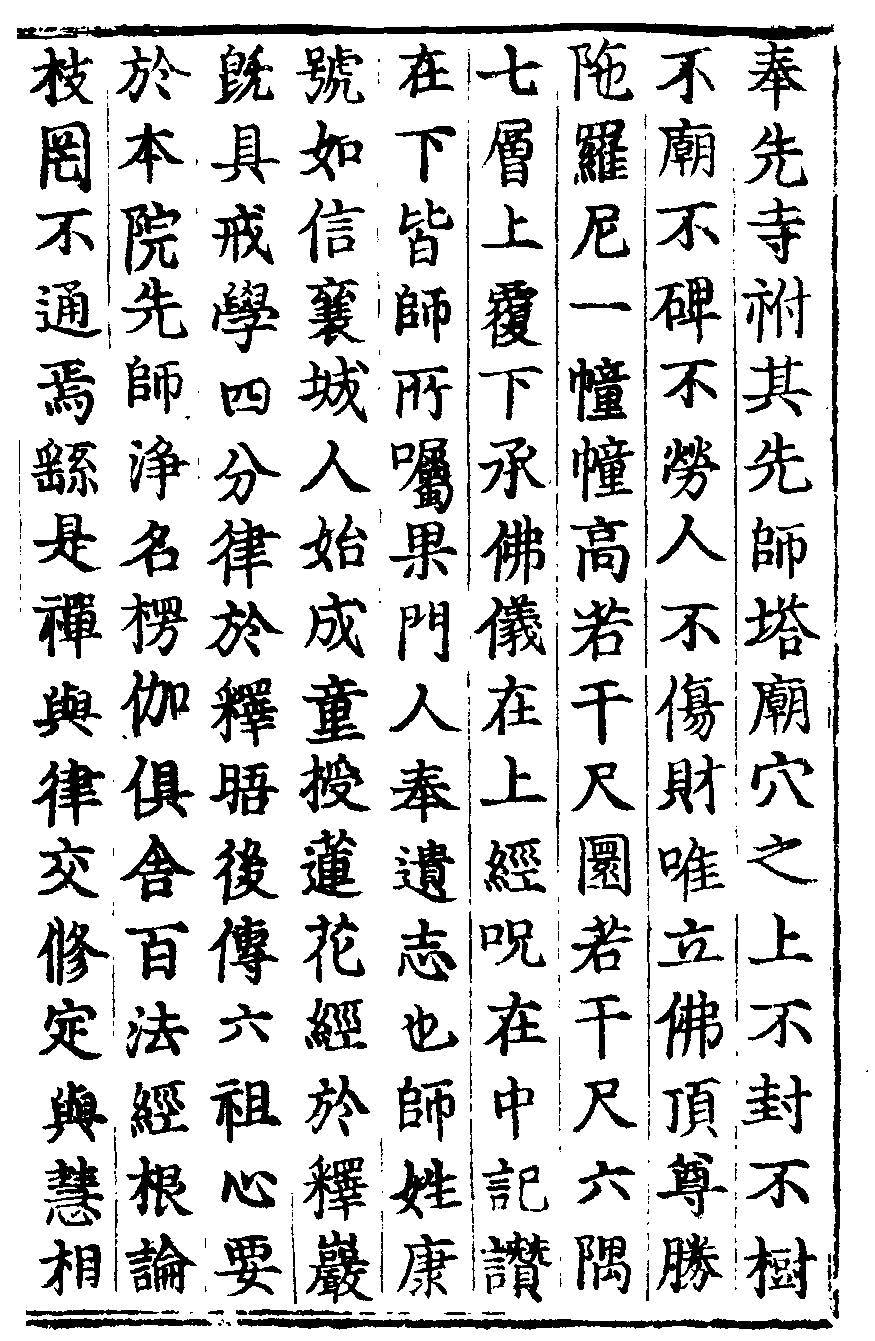 奉先寺祔其先師塔廟穴之上不封不樹
不廟不碑不勞人不傷財唯立佛頂尊勝
陁羅尼一幢幢高若干尺圜若干尺六隅
七層上覆下承佛儀在上經呪在中記讚
在下皆師所囑果門人奉遺志也師姓康
號如信襄城人始成童授蓮花經於釋巖
旣具戒學四分律於釋晤後傳六祖心要
於本院先師浄名楞伽俱舍百法經根論
枝罔不通焉繇是禪與律交脩定與慧相